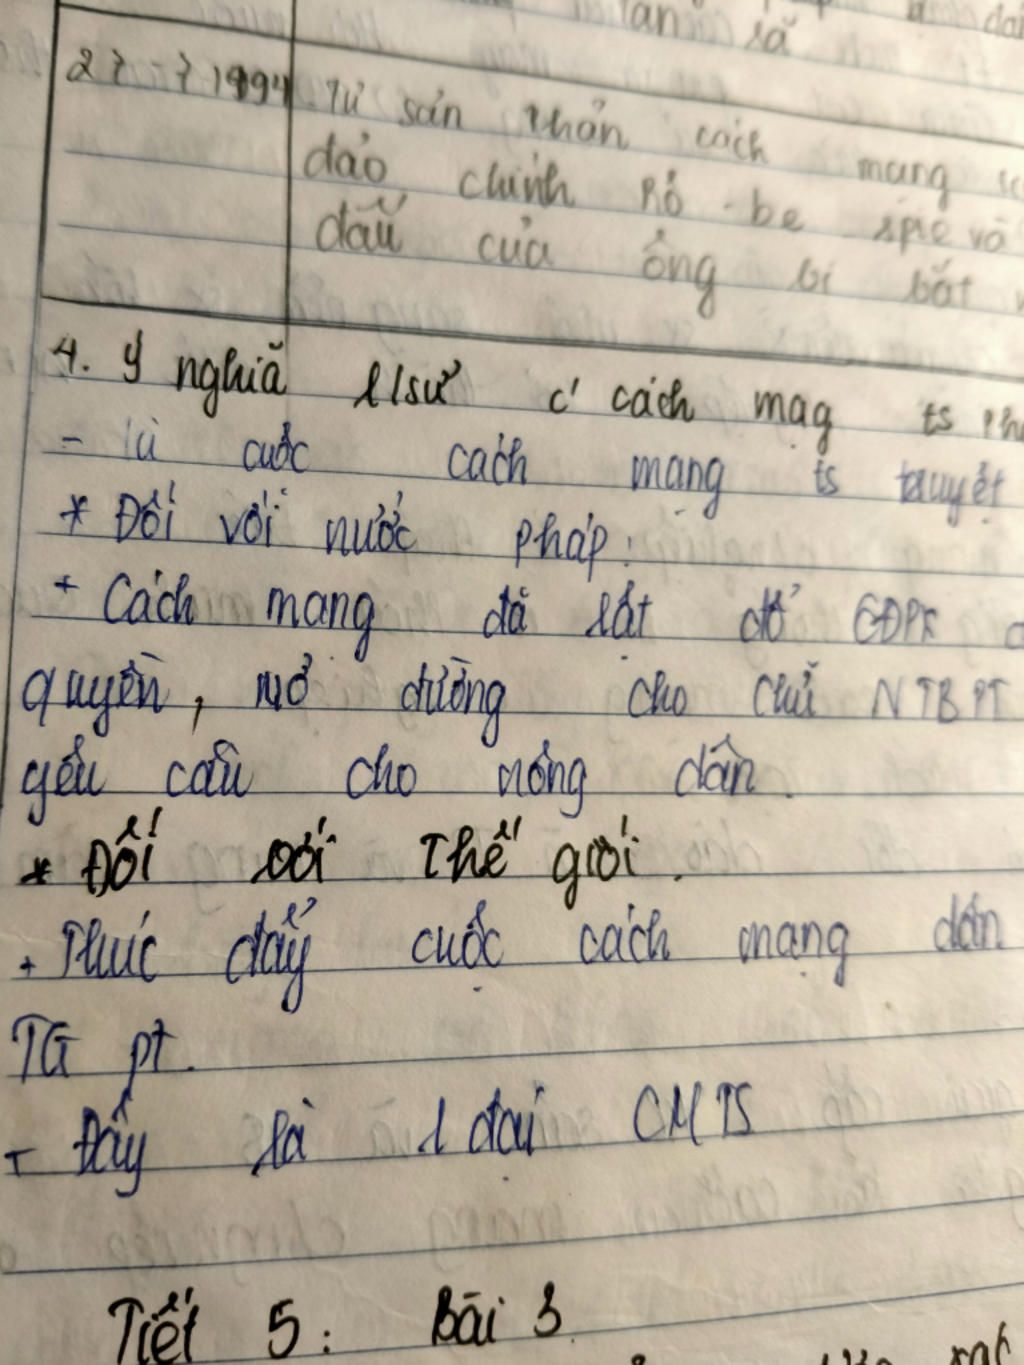 27-7 1994 Tư sản phản cách mạng
đảo, chính Rô-be spie và
đầu của ông bị bắt
4. Ý nghĩa l/sử c' cách mag ts
- là cuộc cách mạng ts
* Đối với nước pháp:
+ Cách mạng đã lật đổ CĐPK
quyền, mở đường cho chủ NTBPT
yêu cầu cho nông dân.
* Đối với Thế giới.
+ Thúc đẩy cuộc cách mạng dân
TG pt.
- Đây là 1 đại CMTS
Tiết 5: Bài 3